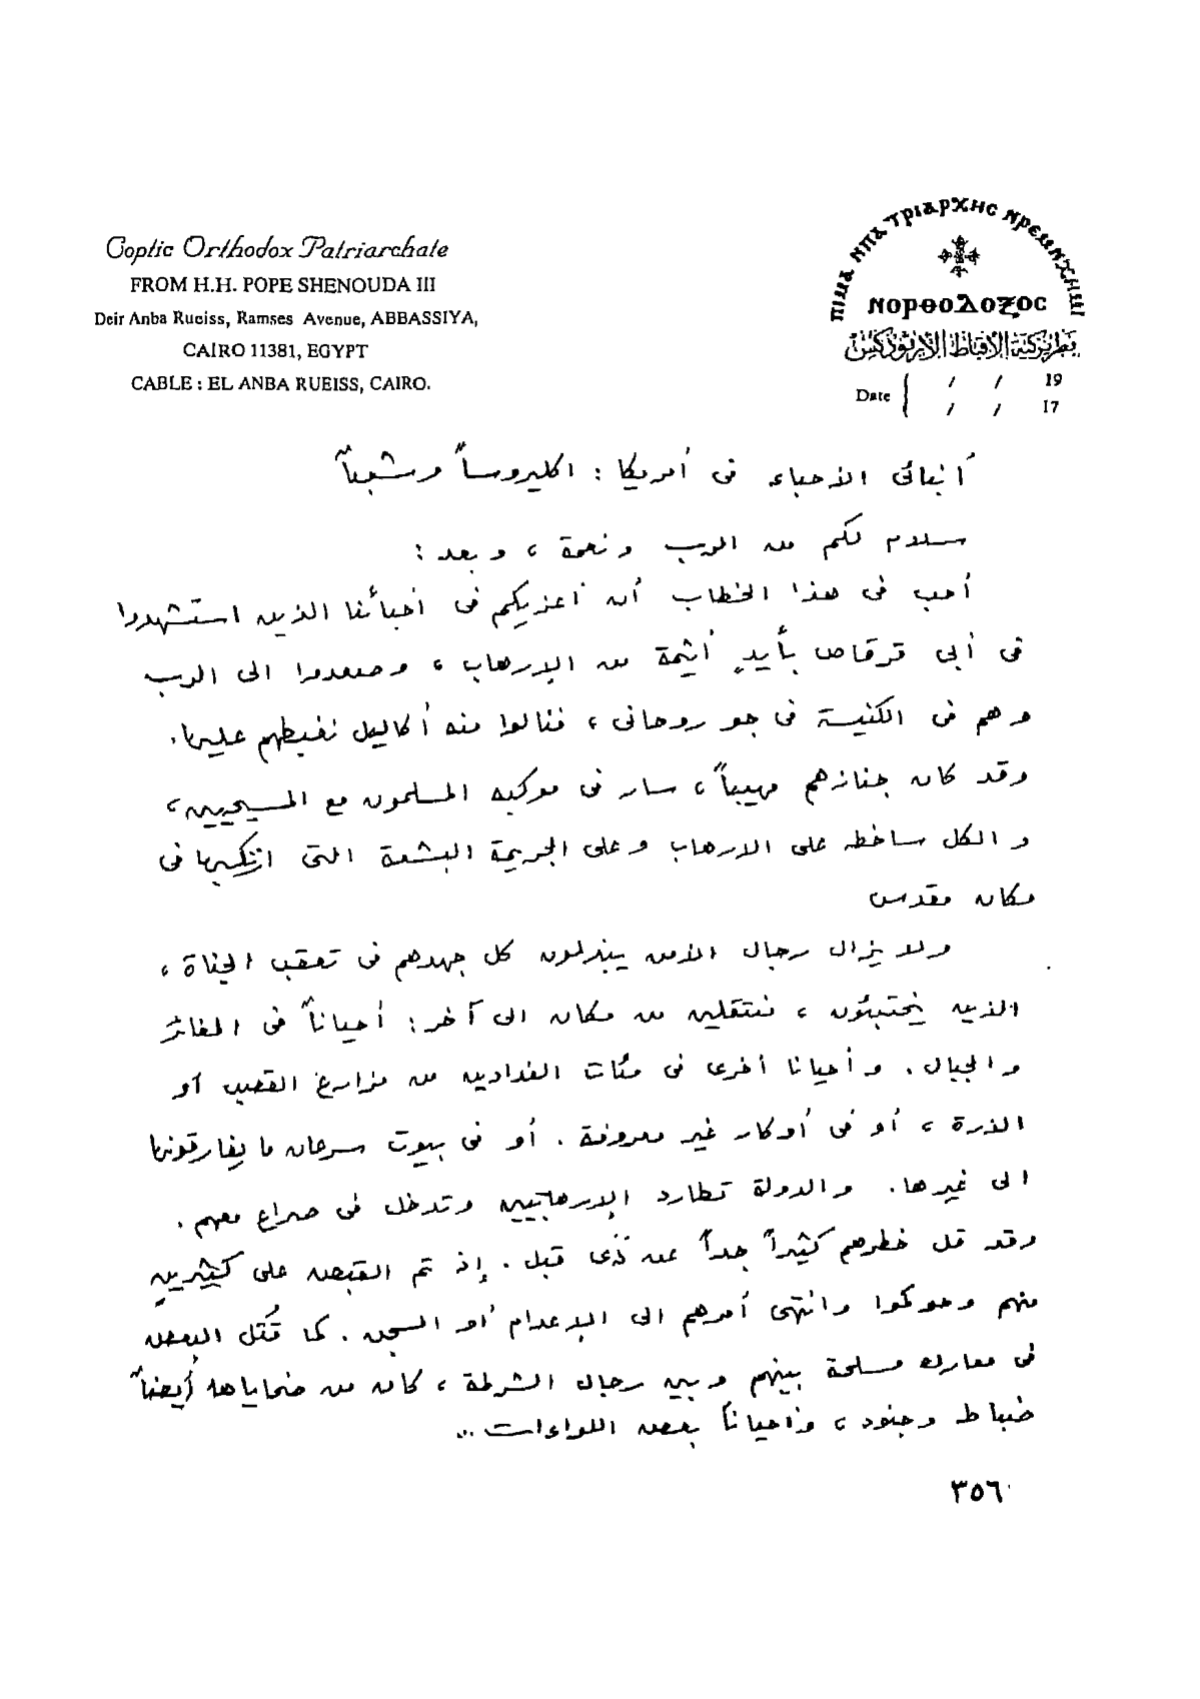 Coptic Orthodox Patriarchate
FROM H.H. POPE SHENOUDA III
Deir Anba Rueiss, Ramses Avenue, ABBASSIYA,
CAIRO 11381, EGYPT
CABLE : EL ANBA RUEISS, CAIRO.
ⲚⲞⲢⲐⲞⲆⲞⲜⲞⲤ
بطريركية الأقباط الأرثوذكس
Date / / 19
/ / 17
أبنائى الأحباء فى أمريكا : اكليروساً وشعباً
سلام لكم من الرب ونعمة ، وبعد :
أحب فى هذا الخطاب أن أعزيكم فى أحبائنا الذين استشهدوا
فى أبى قرقاص بأيدٍ أثيمة من الإرهاب ، وصعدوا الى الرب
وهم فى الكنيسة فى جو روحانى ، فنالوا منه أكاليل نغبطهم عليها .
وقد كان جنازهم مهيباً ، سار فى موكبه المسلمون مع المسيحيين ،
والكل ساخط على الارهاب وعلى الجريمة البشعة التى ارتكبها فى
مكان مقدس
ولا يزال رجال الأمن يبذلون كل جهدهم فى تعقب الجناة ،
الذين يختبئون ، منتقلين من مكان الى آخر : أحياناً فى المغائر
والجبال . وأحيانا أخرى فى مئات الفدادين من مزارع القصب أو
الذرة ، أو فى أوكار غير معروفة . أو فى بيوت سرعان ما يفارقونها
الى غيرها . والدولة تطارد الإرهابيين وتدخل فى صراع معهم .
وقد قل خطرهم كثيراً جداً عن ذى قبل . إذ تم القبض على كثيرين
منهم وحوكموا وانتهى أمرهم الى الإعدام أو السجن . كما قُتل البعض
فى معارك مسلحة بينهم وبين رجال الشرطة ، كان من ضحاياها أيضاً
ضباط وجنود ، وأحياناً بعض اللواءات ...
٣٥٦